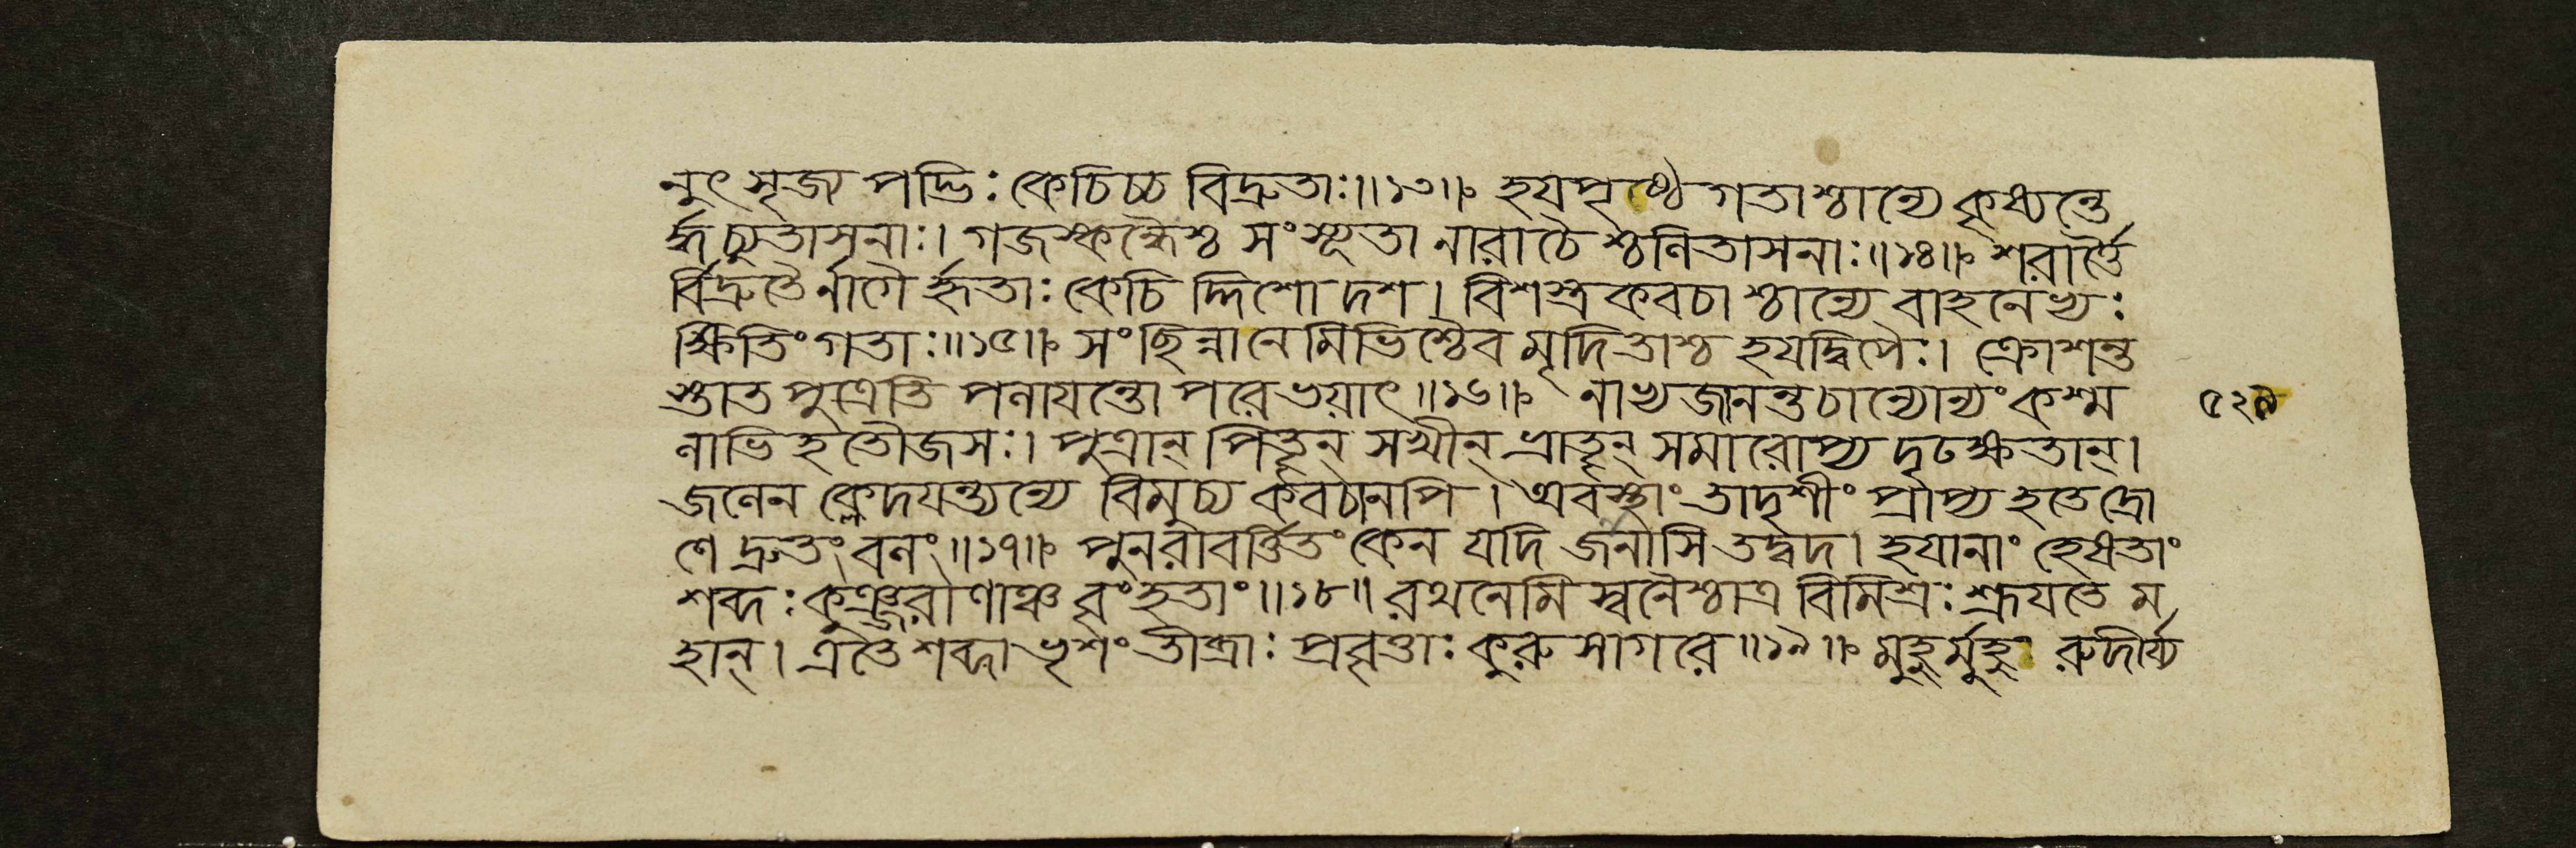 নুৎসৃজ্য পদ্ভিঃ কেচিচ্চ বিদ্রুতাঃ॥১৩॥ হযপৃষ্ঠে গতাশ্চান্যে কৃষ্যন্তে
র্দ্ধচ্যুতাসনাঃ। গজস্কন্ধৈশ্চ সংস্যূতা নারাচৈ শ্চলিতাসনাঃ॥১৪॥ শরার্ত্তৈ
র্বিদ্রুতৈর্নাগৈ র্হৃতাঃ কেচি দ্দিশো দশ। বিশস্ত্রকবচাশ্চান্যে বাহনেভ্যঃ
ক্ষিতিং গতাঃ॥১৫॥ সংছিন্নানেমিভিশ্চৈব মৃদিতাশ্চ হযদ্বিপৈঃ। ক্রোশন্ত
স্তাত পুত্রেতি পলাযন্তো পরে ভয়াৎ॥১৬॥ নাভ্যজানন্তচান্যোন্যং কশ্ম
৫২৯
লাভি হতৌজসঃ। পুত্রান্ পিতৄন্ সখীন্ ভ্রাতৄন্ সমারোপ্য দৃঢক্ষতান্।
জলেন ক্লেদযন্ত্যন্যে বিমুচ্য কবচানপি। অবস্থাং তাদৃশীং প্রাপ্য হতে দ্রো
ণে দ্রুতং বলং॥১৭॥ পুনরাবর্ত্তিতং কেন যদি জানাসি তদ্বদ। হযানাং হেষতাং
শব্দঃ কুঞ্জরাণাঞ্চ বৃংহতাং॥১৮॥ রথনেমি স্বনৈশ্চাত্র বিমিশ্রঃ শ্রূযতে ম
হান্। এতৈ শব্দা ভৃশং তীব্রাঃ প্রবৃত্তাঃ কুরু সাগরে॥১৯॥ মুহুর্মুহু রুদীর্য্য